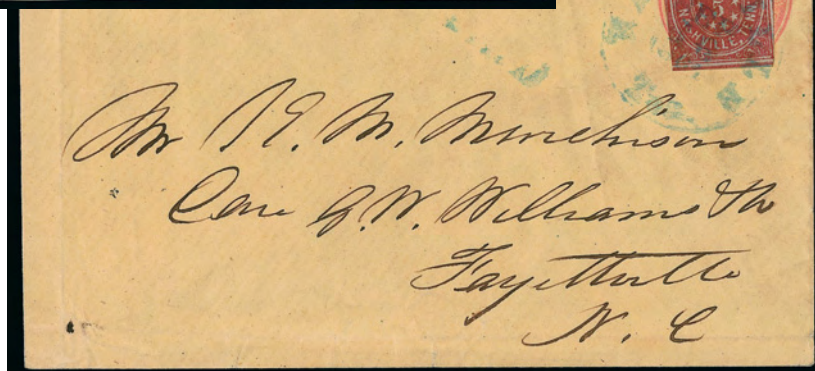 5
NASHVILLE, TENN
Mr K. M. Murchison
Care G. W. Williams & Co
Fayetteville
N. C